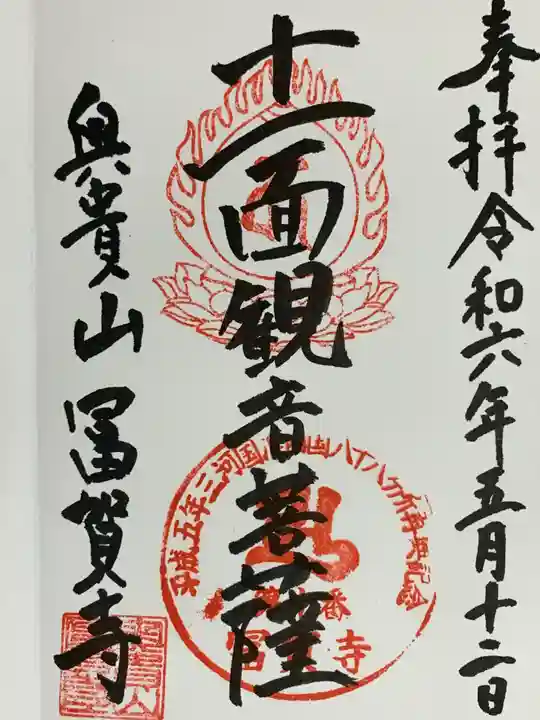 奉拝 令和六年五月十二日
十一面観音菩薩
奥貴山 冨賀寺
平成五年三河国
八十八ヶ所再興記念
番
寺